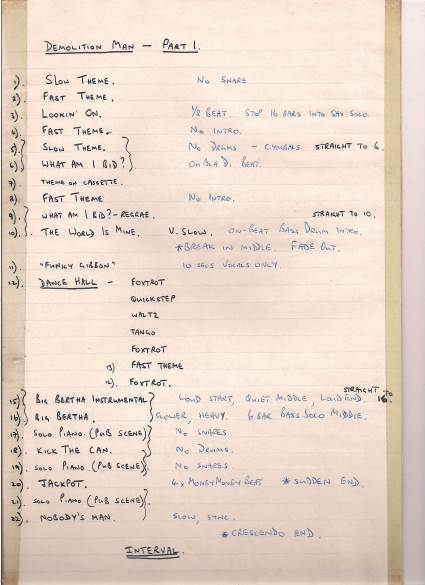 DEMOLITION MAN — PART 1.
1). SLOW THEME. NO SNARE.
2). FAST THEME.
3). LOOKIN' ON. 1/2 BEAT. STOP 16 BARS INTO SAX SOLO.
4). FAST THEME. NO INTRO.
5). SLOW THEME. NO DRUMS - CYMBALS. STRAIGHT TO 6.
6). WHAT AM I BID? OH BLA DI BEAT.
7). THEME ON CASSETTE.
8). FAST THEME NO INTRO.
9). WHAT AM I BID? - REGGAE. STRAIGHT TO 10.
10). THE WORLD IS MINE. V. SLOW. ON-BEAT BASS DRUM INTRO.
*BREAK IN MIDDLE. FADE OUT.
11). "FUNKY GIBBON" 10 SECS VOCALS ONLY.
12). DANCE HALL - FOXTROT
QUICKSTEP
WALTZ
TANGO
FOXTROT
13) FAST THEME
14). FOXTROT.
15) BIG BERTHA INSTRUMENTAL LOUD START, QUIET MIDDLE, LOUD END. STRAIGHT TO 16.
16). BIG BERTHA. SLOWER, HEAVY. 6 BAR BASS SOLO MIDDLE.
17). SOLO PIANO. (PUB SCENE) NO SNARES.
18). KICK THE CAN. NO DRUMS.
19). SOLO PIANO. (PUB SCENE) NO SNARES.
20). JACKPOT. 4 x MONEY MONEY BEAT *SUDDEN END.
21). SOLO PIANO (PUB SCENE).
22). NOBODY'S MAN. SLOW, SYNC.
*CRESCENDO END.
INTERVAL.